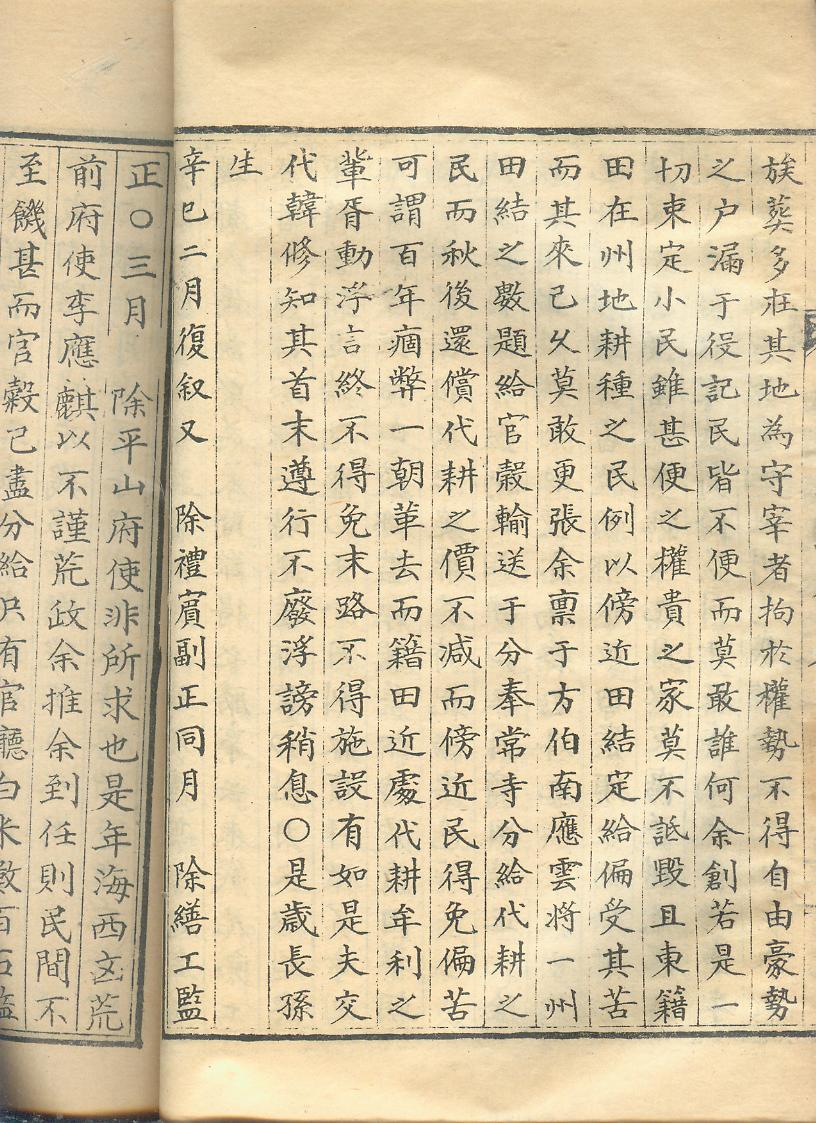 族葬多在其地為守宰者拘於權勢不得自由豪勢
之户漏于役記民皆不便而莫敢誰何余創若是一
切束定小民雖甚便之權貴之家莫不詆毀且東籍
田在州地耕種之民例以傍近田結定給偏受其苦
而其來已久莫敢更張余禀于方伯南應雲將一州
田結之數題給官穀輸送于分奉常寺分給代耕之
民而秋後還償代耕之價不减而傍近民得免偏苦
可謂百年痼弊一朝革去而籍田近處代耕牟利之
輩胥動浮言終不得免末路不得施設有如是夫交
代韓修知其首末遵行不廢浮謗稍息〇是歲長孫
生
辛巳二月復叙又 除禮賓副正同月 除繕工監
正〇三月 除平山府使非所求也是年海西玄荒
前府使李應麒以不謹荒政余推余到任則民間不
至饑甚而官穀已盡分給只有官廳白米數百石